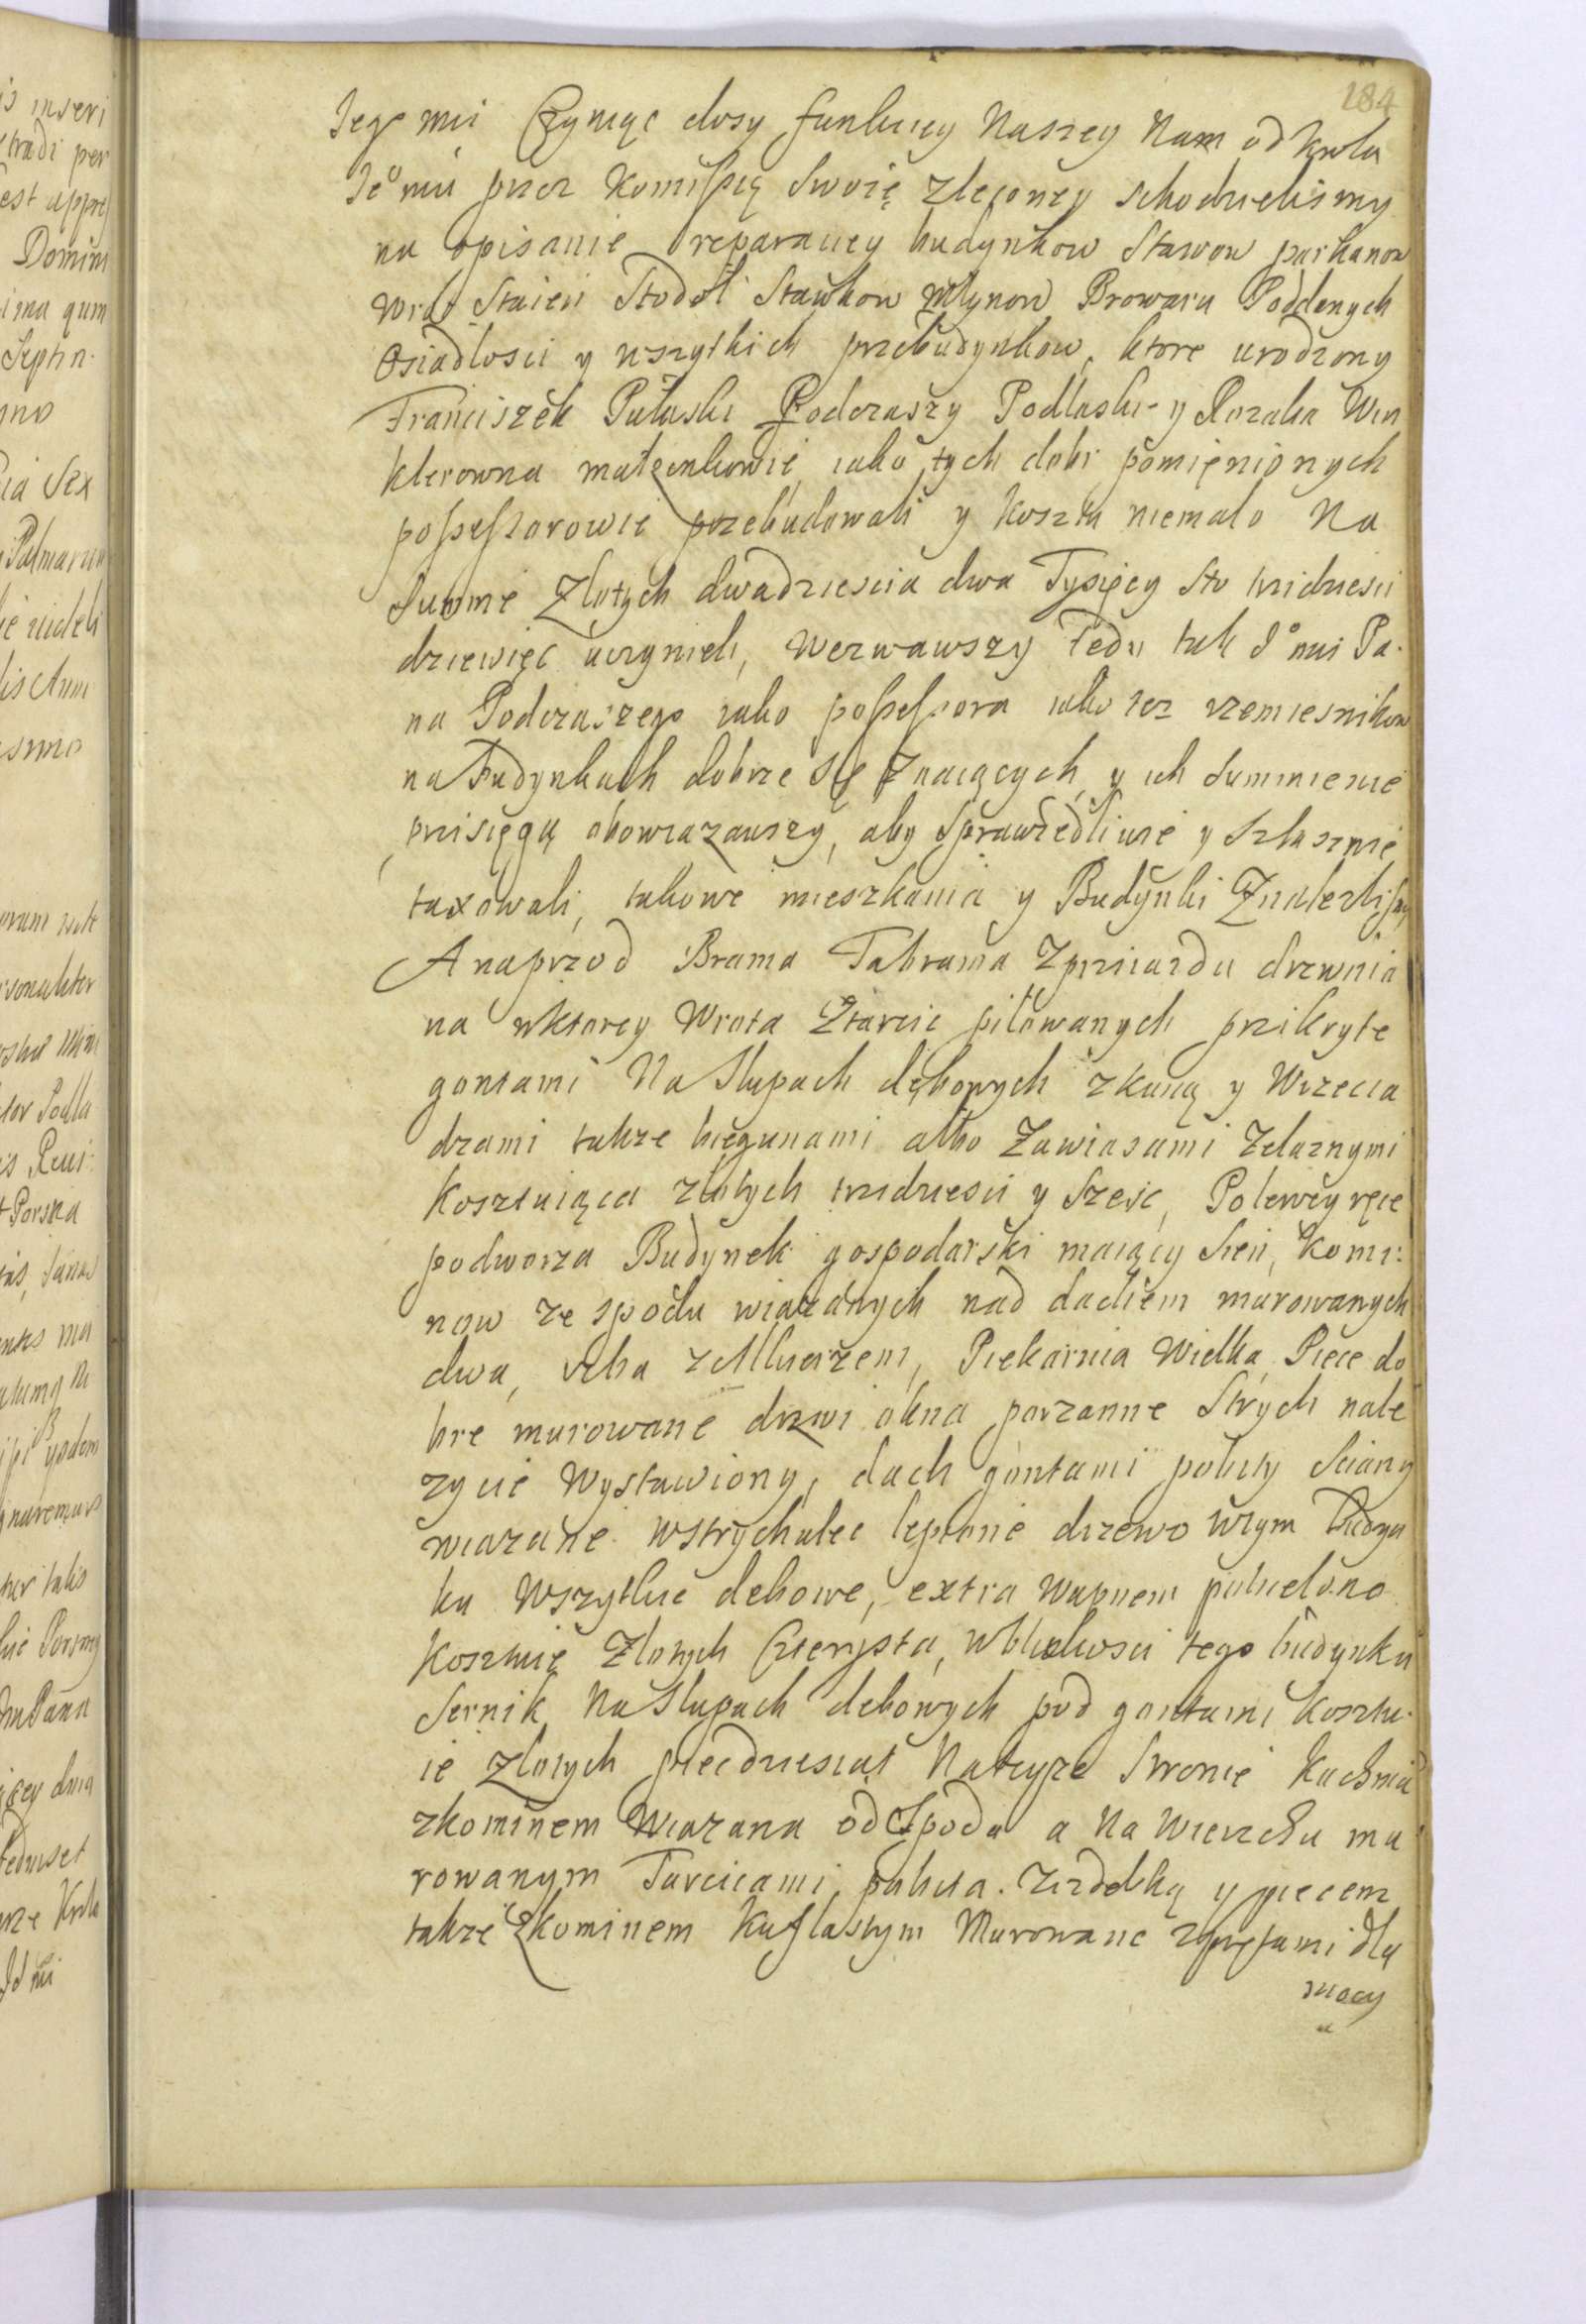 184
Jego mci Czyniąc dosyc funkcyey Naszey Nam od Krola
Je° mci przez Komissyą Swoię zleconey schodzielismy
na opisanie reparacyey budynkow Stawow parkanow
Wrot Staien Stodół Stawkow Młynow Browaru Poddanych
Osiadłosci y wszytkich przebudynkow, ktore urodzony
Franciszek Pułaski Podczaszy Podlaski y Rozalia Win
klerowna małzonkowie, iako tych dobr pomięnionych
possessorowie przebudowali y koszta niemało Na
Summe Złotych dwadziescia dwa Tysięcy sto trzidziesci
dziewięc uczynieli, Wezwawszy tedy tak J° mci Pa-
na Podczaszego iako possessora iako tez rzemiesnikow
na Budynkach dobrze się znaiących, y ich Summienie
przisięgą obowiazawszy, aby Sprawiedliwie y Słusznie
taxowali, takowe mieszkania y Budynki Znalezlismy
A naprzod Brama Zprziiazdu drzewnia
na wktorey Wrota Ztarcic piłowanych przikryte
gontami Na Słupach dębowych zkuną y Wrzecia
dzami takze biegunami albo Zawiasami Zelaznymi
Kosztuiąca złotych trzidziesci y Szesc, Polewey ręce
podworza Budynek gospodarski maiący Sien, Komi:
now ze spodu wiazanych nad dachem murowanych
dwa, izba zAlkierzem, Piekarnia Wielka, Piece do
bre murowane drzwi okna porzanne Strych nale
zycie Wystawiony, dach gontami pobity Sciany
wiazane wstrychulec lepione drzewo Wtym Budyn
ku Wszytkie debowe, extra Wapnem pobielono
Kosztuię Złotych Czterysta, Wbliskosci tego budynku
Sernik Na Słupach debowych pod gontami Kosztu-
ie Złotych piecdziesiat Nateyze Stronie Kuchnia
zkominem Wiazana od Spodu a Na Wierzchu mu
rowanym Tarcicami pobita. Zizdebką y piecem
takze zkominem Kaflastym Murowane zprętami dla
mocy